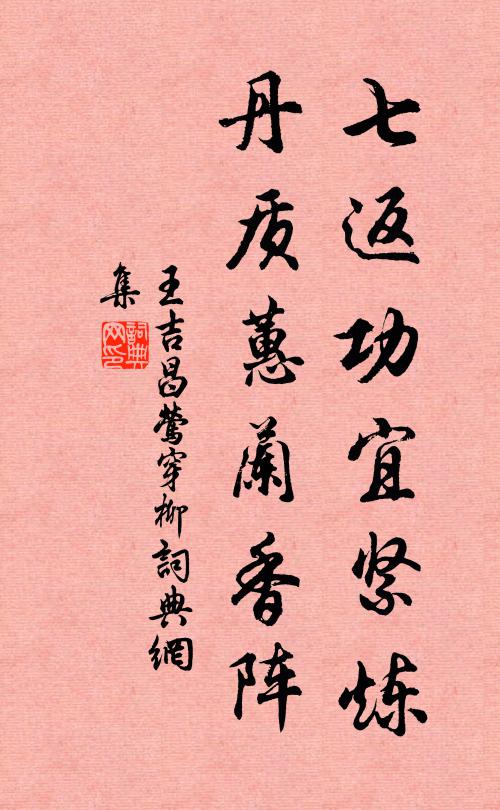 七返功宜紧炼
丹质蕙兰香阵
王吉昌莺穿柳詞典網
集
詞典网印